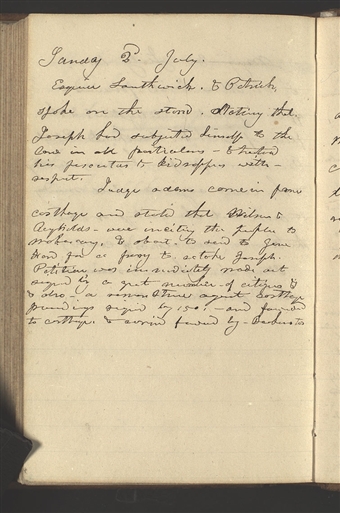 Sunday 2d. July.
Esquire Southwick. & Patrick,
spoke on the stand. Stating that
Joseph had subjected himself to the
Law in all particulars - & treated
his persecutors & kidnappers with -
respect.
Judge adams come in from
carthage and stated that Wilson &
Reynolds - were inciting the people to
mobocracy, & about to send to
for a to retake Joseph.
Petition was immediately made out
signed by a great number of citizens &
& also - a remonstrance against Carthage
proceedings signed by 150. - and
to carthage. & by -